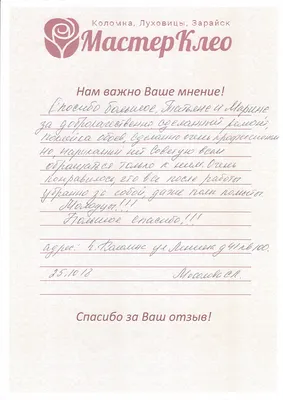 Коломна, Луховицы, Зарайск
МастерКлео
Нам важно Ваше мнение!
Спасибо большое, Татьяне и Марине
за доброкачественно сделанный ремонт
поклейка обоев, сделано очень профессиональ
но, нареканий нет Советую всем
обращаться только к ним. Очень
понравилось, что все после работы
убранно за собой, даже полы помыты
Молодцы!!!
Большое спасибо!!!
адрес: г. Коломна ул
25.10.18
Спасибо за Ваш отзыв!